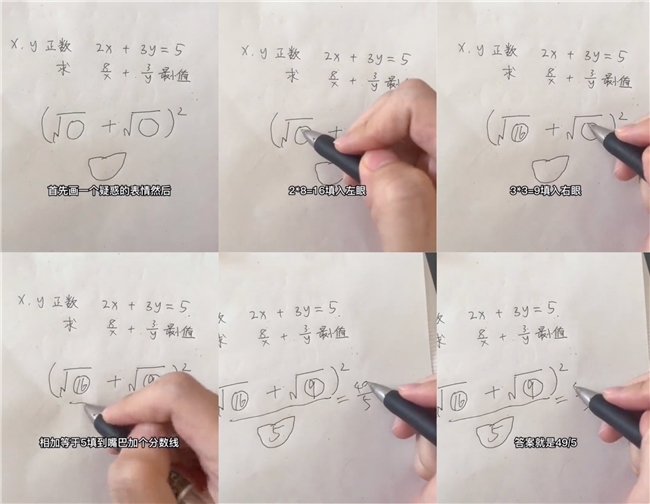 x, y 正数 2x + 3y = 5
求 8/x + 3/y 最值
(√○ + √○)²
首先画一个疑惑的表情然后
x, y 正数 2x + 3y = 5
求 8/x + 3/y 最值
(√ +
2*8=16填入左眼
x, y 正数 2x + 3y = 5
求 8/x + 3/y 最值
(√16 + √ )²
3*3=9填入右眼
x, y 正数 2x + 3y = 5.
求 8/x + 3/y 最值
(√16 + √9)²
相加等于5填到嘴巴加个分数线
数 2x + 3y = 5.
求 8/x + 3/y 最值
√16 + √9)² = 49/5
5
数 2x + 3y = 5.
求 8/x + 3/y 最值
√16 + √9)² =
5
答案就是49/5